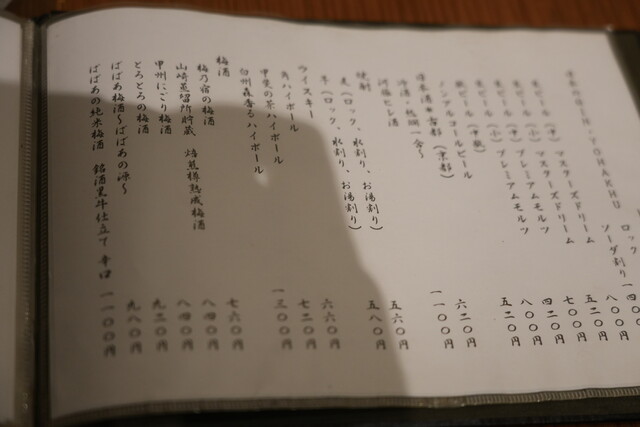 ロック 一四〇
ソーダ割り
生ビール（中） マスターズドリーム 八〇〇円
生ビール（小） マスターズドリーム 五二〇円
生ビール（中） プレミアムモルツ 七〇〇円
生ビール（小） プレミアムモルツ 四二〇円
瓶ビール（中瓶） 八〇〇円
ノンアルコールビール 五二〇円
日本酒 古都（京都） 六二〇円
冷酒・
河豚ヒレ酒 一一〇〇円
焼酎
麦（ロック、水割り、お湯割り） 五六〇円
芋（ロック、水割り、お湯割り） 五八〇円
ウイスキー
角ハイボール 六六〇円
甲斐の茶ハイボール 七二〇円
白州森香るハイボール 一三〇〇円
梅酒
梅乃宿の梅酒 七六〇円
山崎蒸留所貯蔵 焙煎樽熟成梅酒 八四〇円
甲州にごり梅酒 八四〇円
とろとろの梅酒 九二〇円
ばばあ梅酒〜ばばあの涙〜 九八〇円
ばばあの純米梅酒 銘酒黒牛仕立て 辛口 一一〇〇円